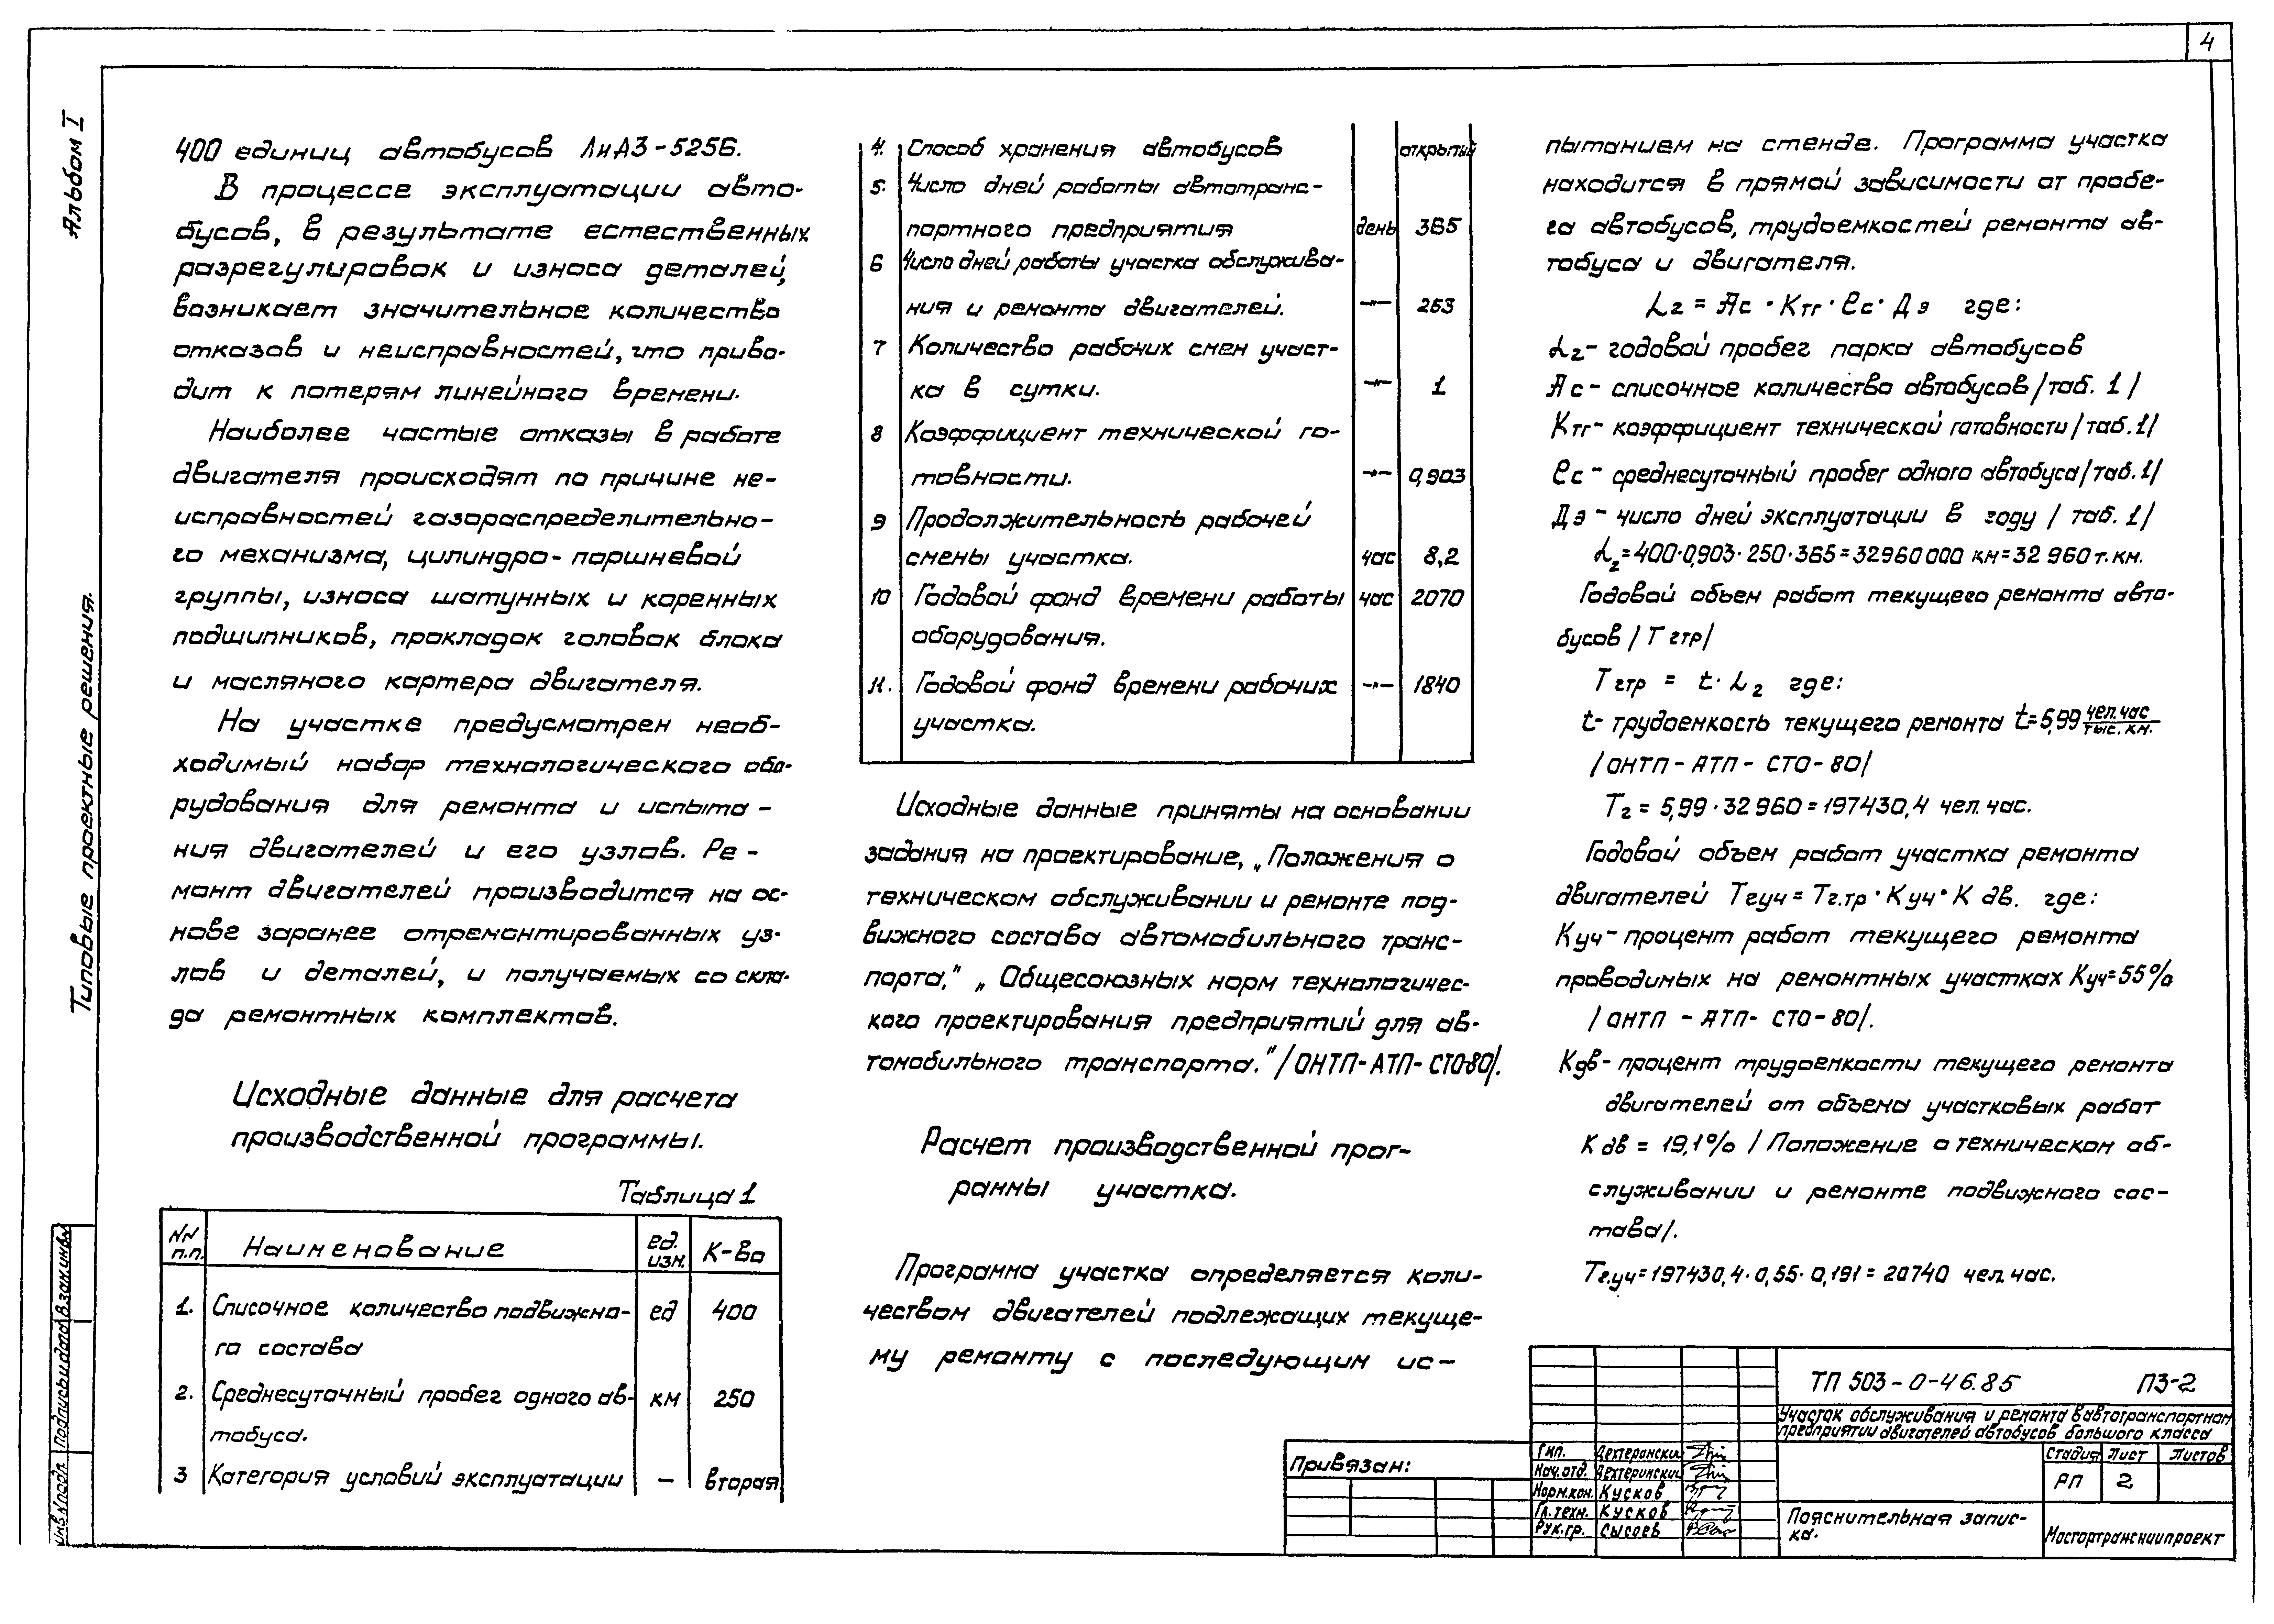 4
Альбом I
Типовые проектные решения.
400 единиц автобусов ЛиАЗ-5256.
В процессе эксплуатации авто-
бусов, в результате естественных
разрегулировок и износа деталей,
возникает значительное количество
отказов и неисправностей, что приво-
дит к потерям линейного времени.
Наиболее частые отказы в работе
двигателя происходят по причине не-
исправностей газораспределительно-
го механизма, цилиндро-поршневой
группы, износа шатунных и коренных
подшипников, прокладок головок блока
и масляного картера двигателя.
На участке предусмотрен необ-
ходимый набор технологического обо-
рудования для ремонта и испыта-
ния двигателей и его узлов. Ре-
монт двигателей производится на ос-
нове заранее отремонтированных уз-
лов и деталей, и получаемых со скла-
да ремонтных комплектов.
Исходные данные для расчета
производственной программы.
Таблица 1
NN п.п. Наименование ед. изм. К-во
1. Списочное количество подвижно- ед 400
го состава
2. Среднесуточный пробег одного ав- км 250
тобуса.
3 Категория условий эксплуатации — вторая
4. Способ хранения автобусов открытый
5. Число дней работы автотранс-
портного предприятия день 365
6 Число дней работы участка обслужива-
ния и ремонта двигателей. —"— 253
7 Количество рабочих смен участ-
ка в сутки. —"— 1
8 Коэффициент технической го-
товности. —"— 0,903
9 Продолжительность рабочей
смены участка. час 8,2
10 Годовой фонд времени работы час 2070
оборудования.
11. Годовой фонд времени рабочих —"— 1840
участка.
Исходные данные приняты на основании
задания на проектирование, „Положения о
техническом обслуживании и ремонте под-
вижного состава автомобильного транс-
порта," „Общесоюзных норм технологичес-
кого проектирования предприятий для ав-
томобильного транспорта." /ОНТП-АТП-СТО-80/.
Расчет производственной прог-
раммы участка.
Программа участка определяется коли-
чеством двигателей подлежащих текуще-
му ремонту с последующим ис-
пытанием на стенде. Программа участка
находится в прямой зависимости от пробе-
га автобусов, трудоемкостей ремонта ав-
тобуса и двигателя.
Lг = Ас · Ктг · ℓс · Дэ где:
Lг - годовой пробег парка автобусов
Ас - списочное количество автобусов /таб. 1/
Ктг - коэффициент технической готовности /таб.1/
ℓс - среднесуточный пробег одного автобуса /таб.1/
Дэ - число дней эксплуатации в году / таб. 1/
Lг = 400·0,903·250·365 = 32960000 км = 32 960 т. км.
Годовой объем работ текущего ремонта авто-
бусов /Т гтр/
Т гтр = t · Lг где:
t - трудоемкость текущего ремонта t = 5,99 чел.час/тыс. км.
/ОНТП - АТП - СТО - 80/
Тг = 5,99 · 32 960 = 197430,4 чел. час.
Годовой объем работ участка ремонта
двигателей Тгуч = Тг.тр · Куч · К дв. где:
Куч - процент работ текущего ремонта
проводимых на ремонтных участках Куч = 55%
/ОНТП - АТП - СТО - 80/.
Кдв - процент трудоемкости текущего ремонта
двигателей от объема участковых работ
К дв = 19,1% / Положение о техническом об-
служивании и ремонте подвижного сос-
тава/.
Тг.уч = 197430,4 · 0,55 · 0,191 = 20740 чел. час.
ТП 503-0-46.85 ПЗ-2
Участок обслуживания и ремонта в автотранспортном
предприятии двигателей автобусов большого класса
Стадия Лист Листов
РП 2
Пояснительная запис-
ка.
Мосгортрансниипроект
Привязан:
Гип. Дехтеринский
Нач.отд. Дехтеринский
Норм.кон. Кусков
Гл.техн. Кусков
Рук.гр. Сысоев
Инв.№подл. Подпись и дата Взам.инв.№